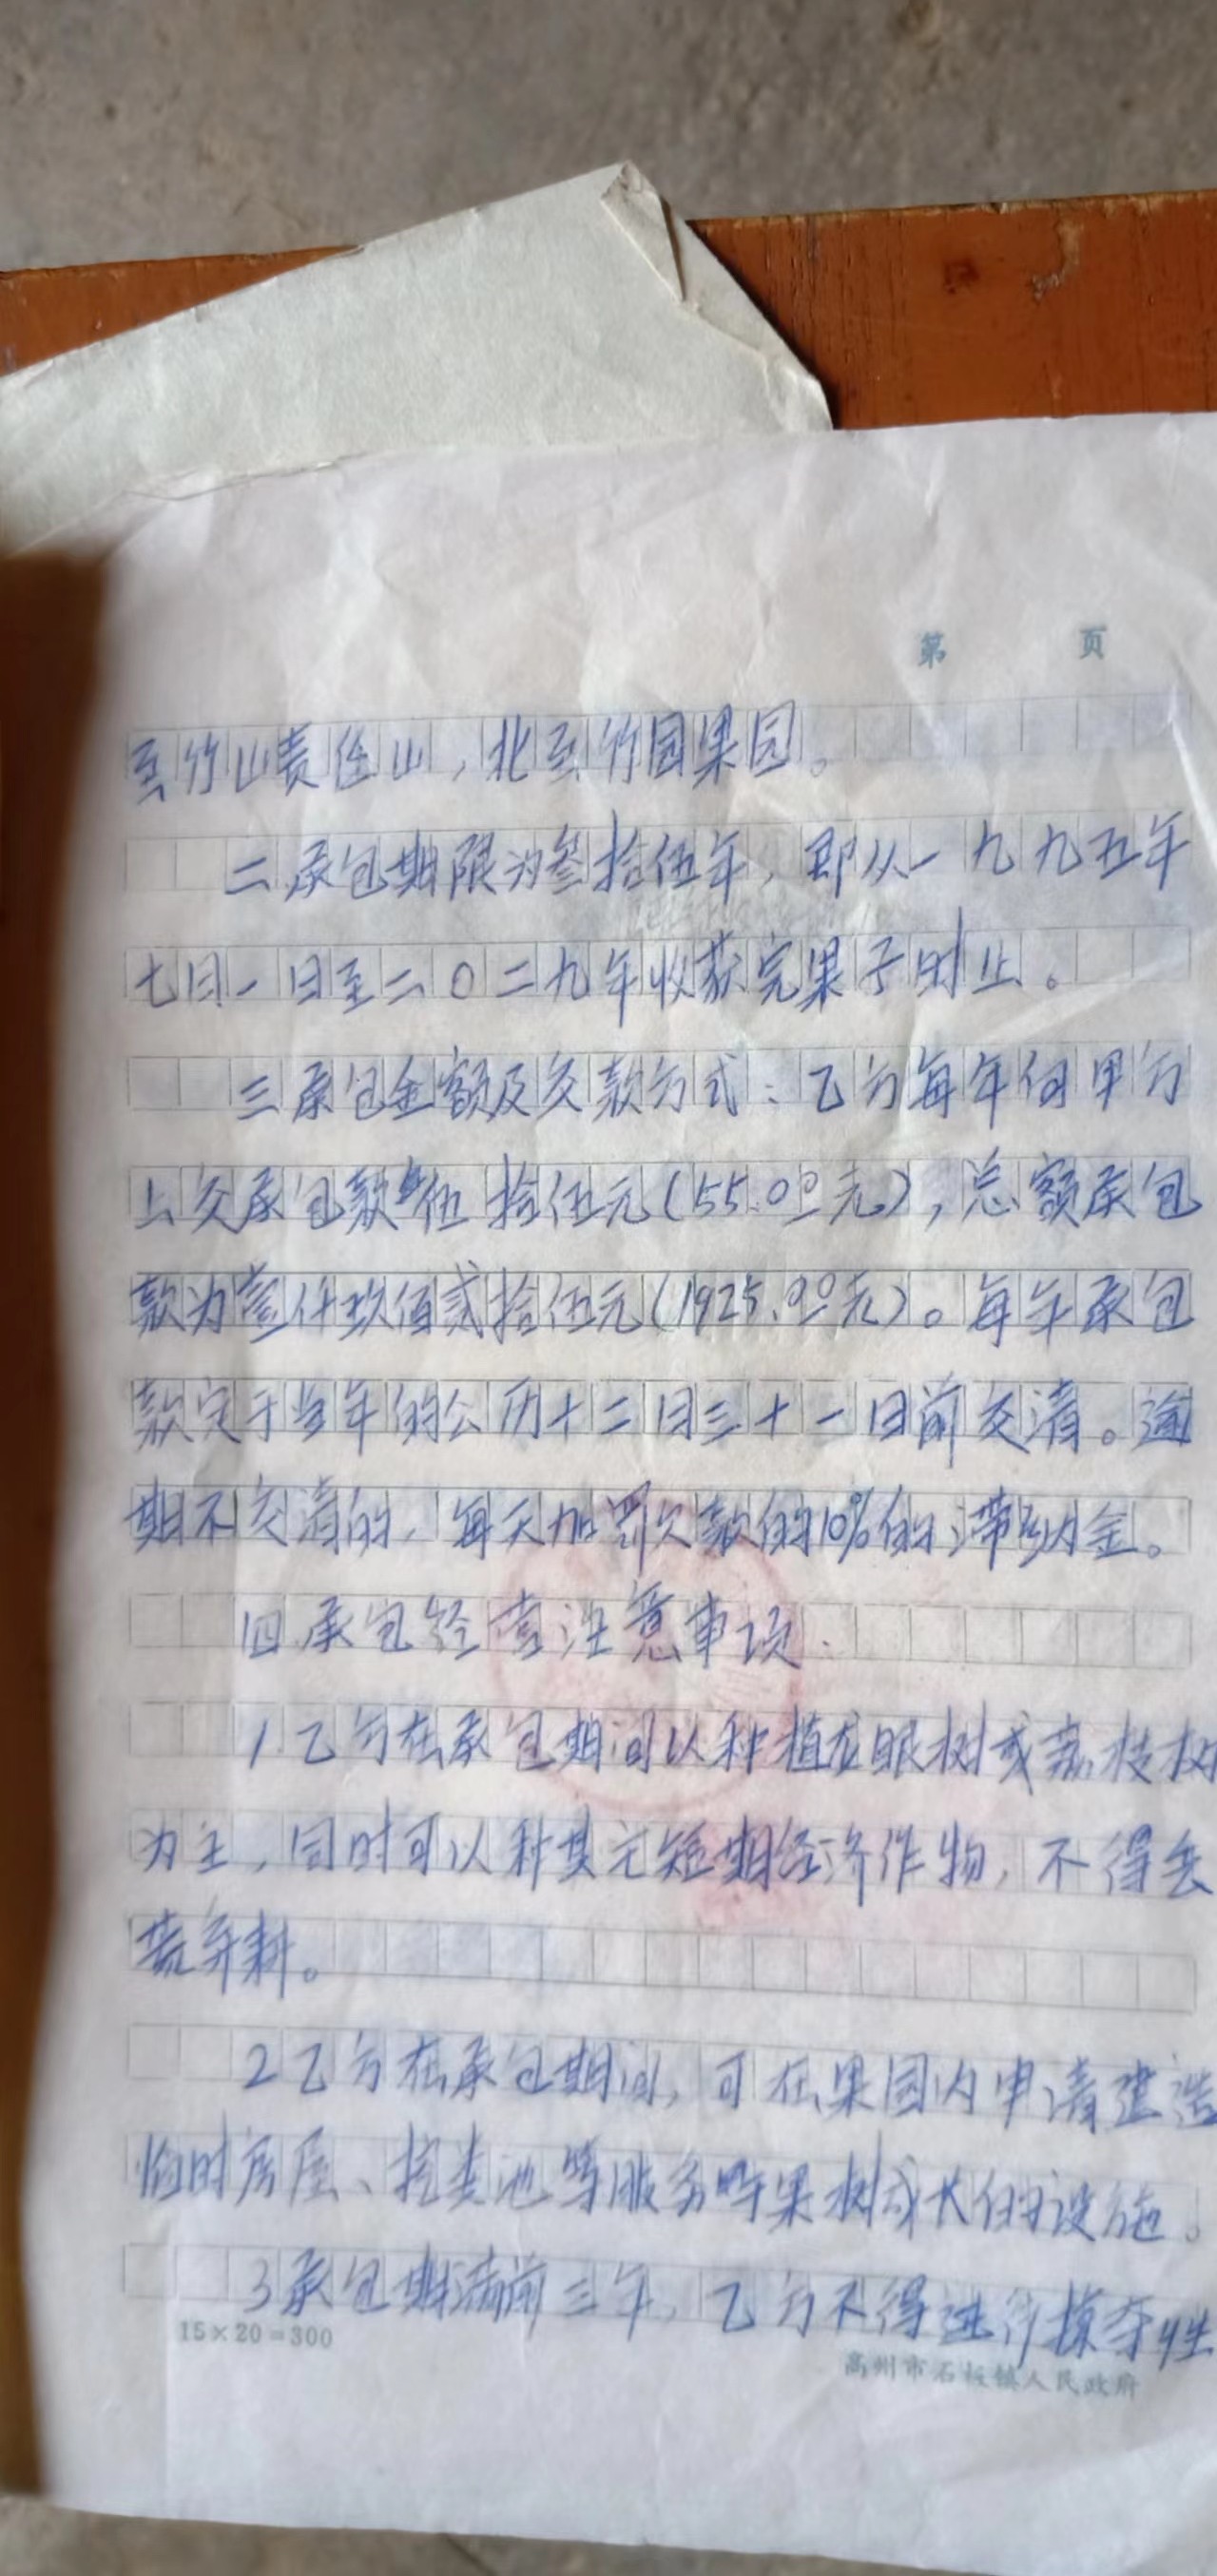 第 页
至竹山责任山，北至竹园果园。
二承包期限为叁拾伍年，即从一九九五年
七月一日至二0二九年收获完果子时止。
三承包金额及交款方式：乙方每年向甲方
上交承包款伍拾伍元(55.00元)，总额承包
款为壹仟玖佰贰拾伍元(1925.00元)。每年承包
款定于当年的公历十二月三十一日前交清。逾
期不交清的，每天加罚欠款的10%的滞纳金。
四承包经营注意事项：
1.乙方在承包期间以种植龙眼树或荔枝树
为主，同时可以种其它短期经济作物，不得丢
荒弃耕。
2乙方在承包期间，可在果园内申请建造
临时房屋、挖粪池等服务果树成长的设施。
3承包期满前三年，乙方不得进行掠夺性
15×20=300
高州市石板镇人民政府